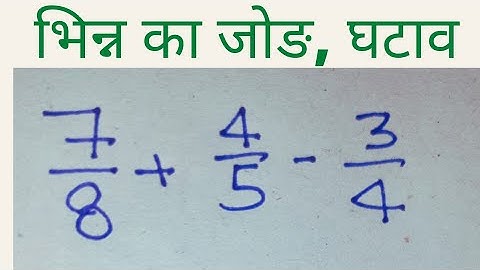 भिन्न का जोङ, घटाव
7/8 + 4/5 - 3/4